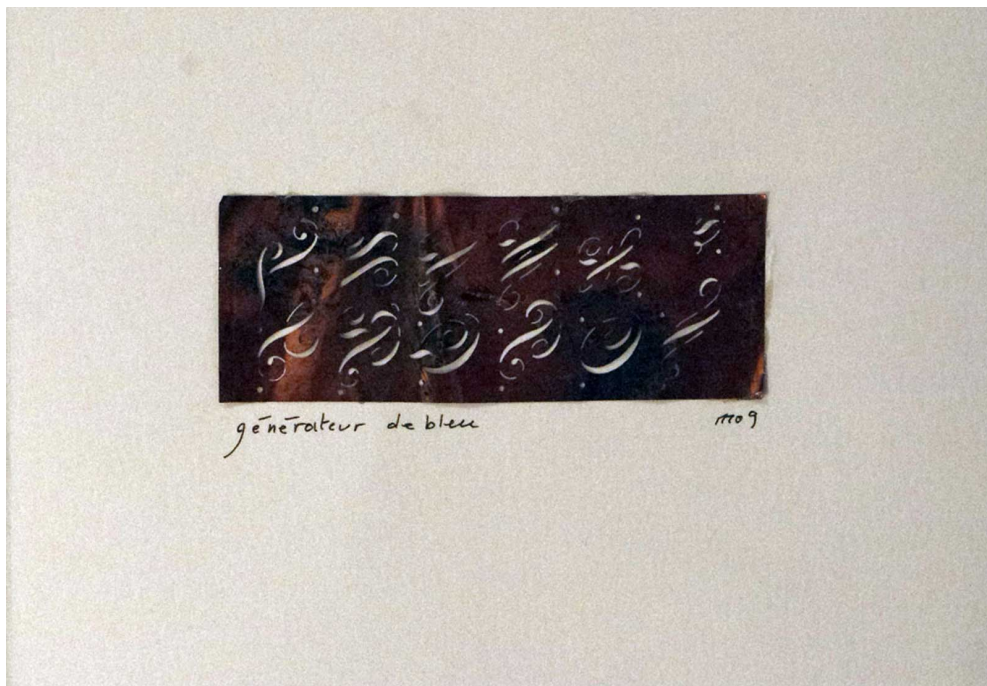 générateur de bleu
mo9